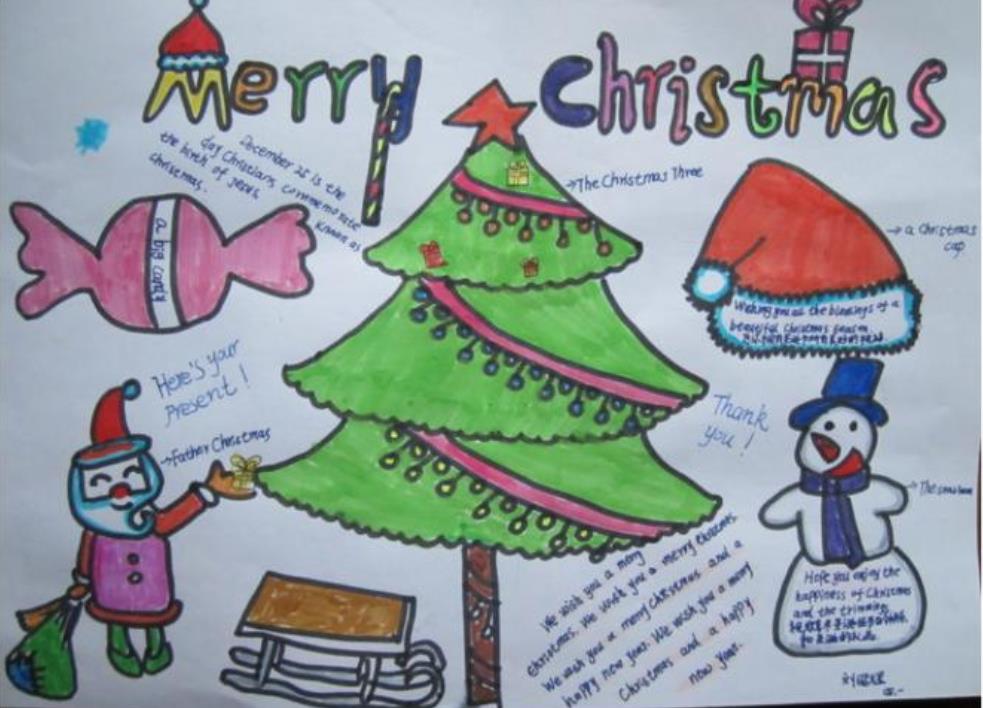 Merry Christmas
December 25 is the
day Christians commemorate
the birth of Jesus, known as
christmas.
→The Christmas Three
→a Christmas
cap
a big candy
Wishing you all the blessings of a
beautiful Christmas season
Here's your
present!
→Father Christmas
Thank
you!
→The
Hope you enjoy the
happiness of Christmas
and the trimming
We wish you a merry
christmas. We wish you a merry christmas.
We wish you a merry christmas and a
happy new year. We wish you a merry
Christmas and a happy
new year.